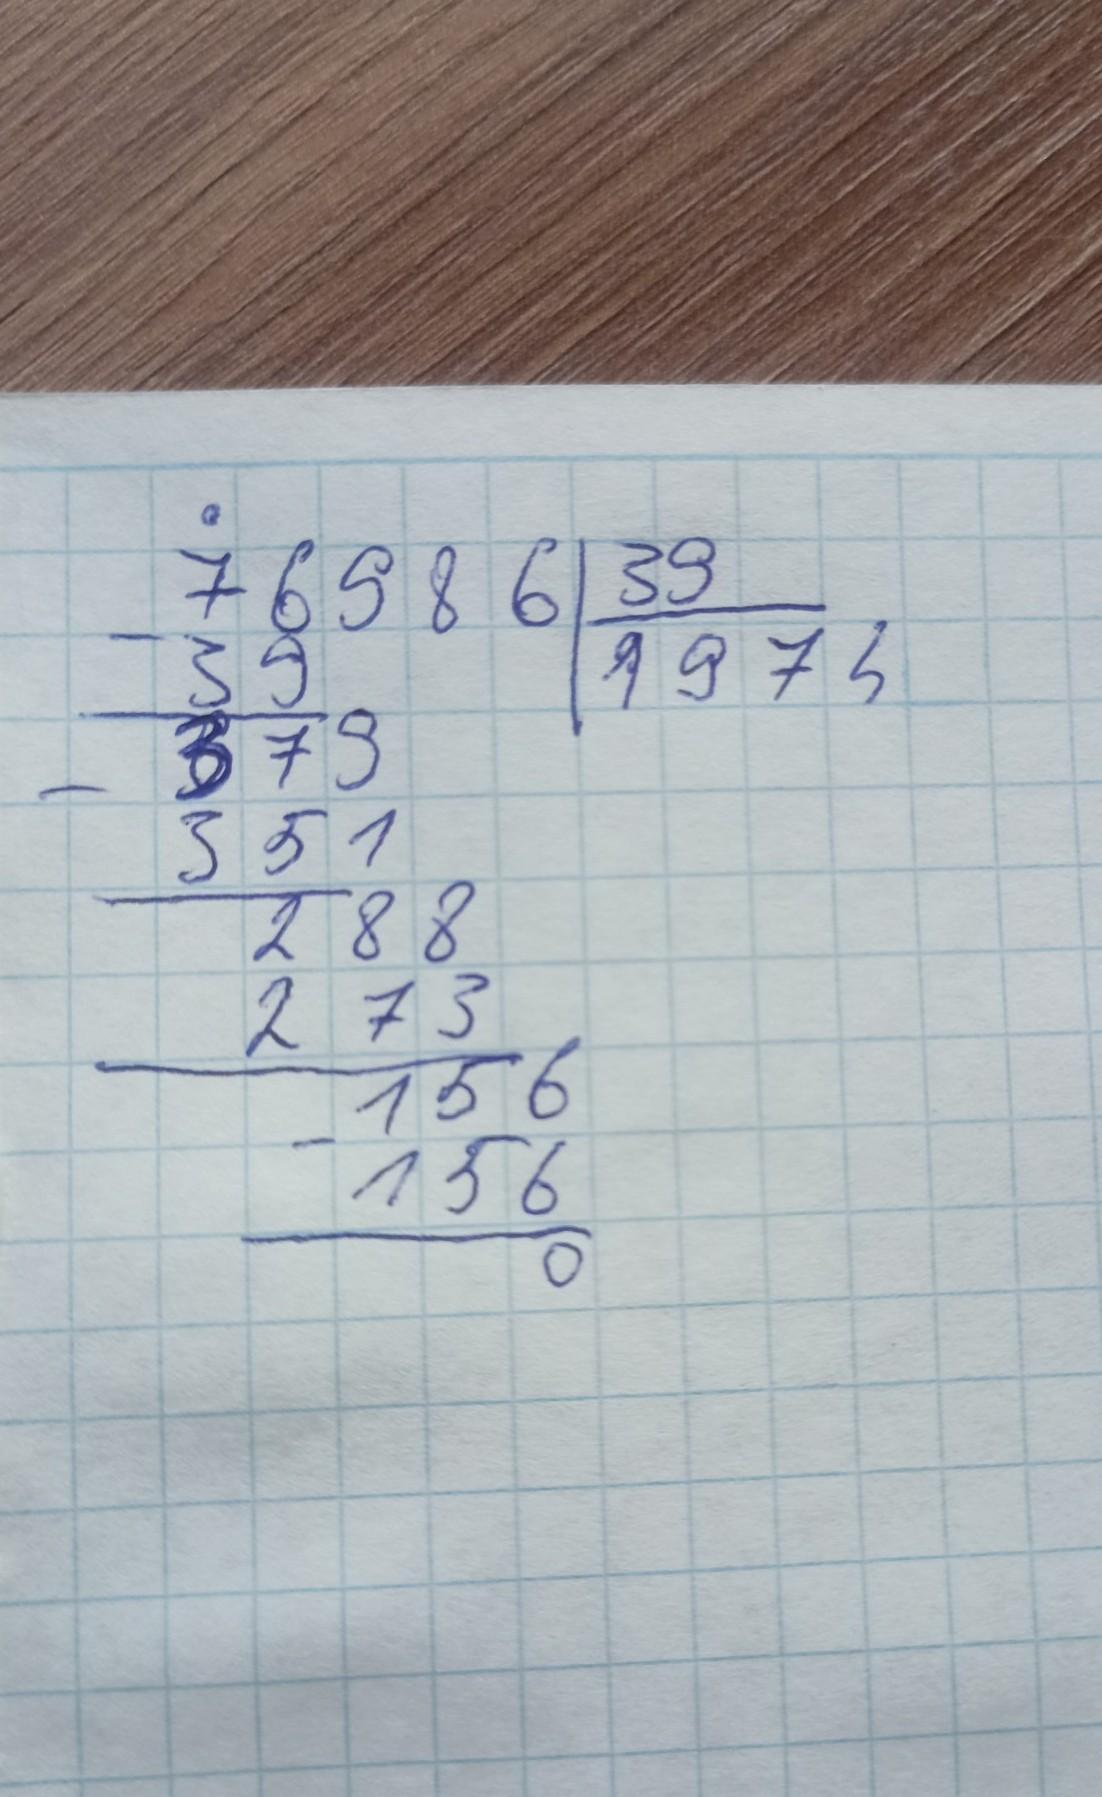 76986 39
39 1974
379
351
288
273
156
156
0